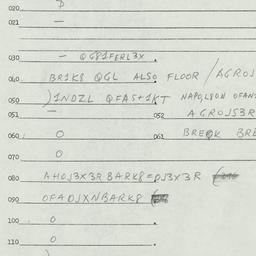 020
021 —
030 — QG81FERL3X.
040 BR1K8 QGL ALSO FLOOR / AGROJS
050 )1NDZL QFAS+1KT NAPOLEON OFAN
051 — 052 AGROJS3R
060 O 061 BREQK BRE
070 O
080 AHOJ3X3R BARK8=PJ3X3R
090 OFAOJXNBARK8
100 O
110 O